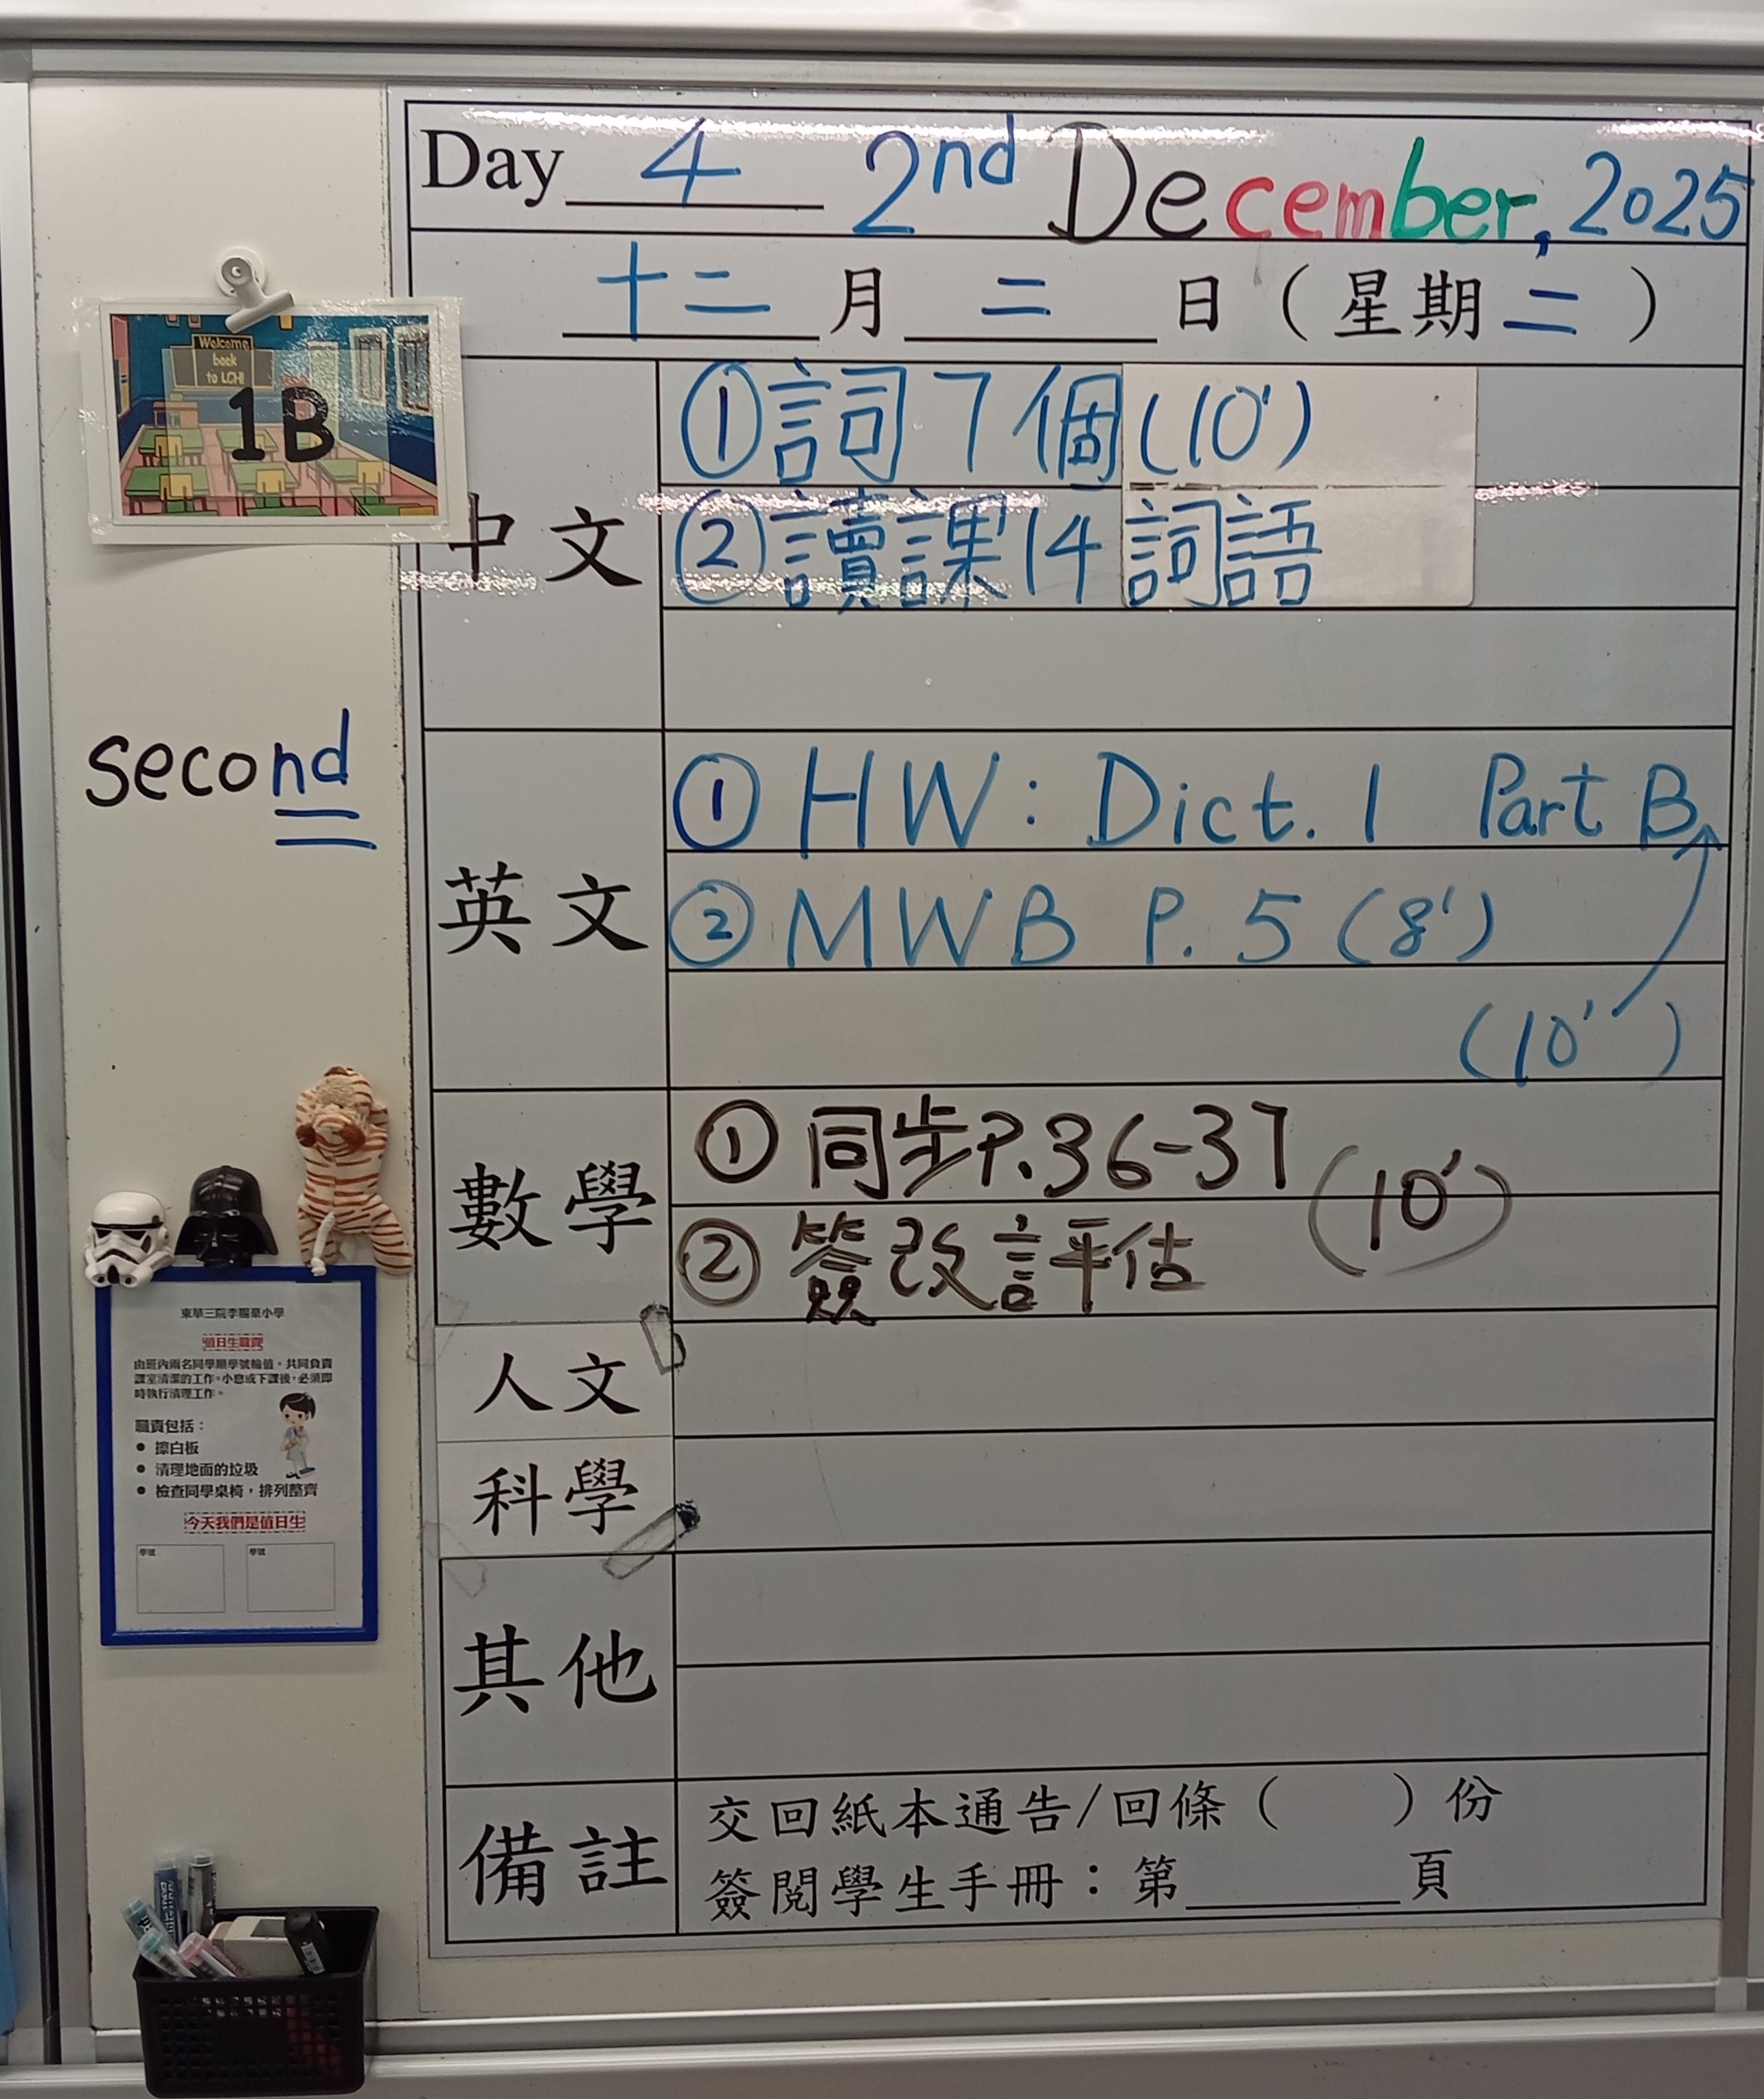 Day 4 2nd December, 2025
十二月二日(星期二)
Welcome
back
to LCH!
1B
中文
①詞7個(10')
②讀課14詞語
second
英文
①HW: Dict. 1 Part B
②MWB P. 5 (8')
(10')
數學
①同步P.36-37
(10')
②簽改評估
人文
科學
其他
備註
交回紙本通告/回條( )份
簽閱學生手冊:第____頁
東華三院李賜豪小學
值日生職責
由班內兩名同學順學號輪值,共同負責
課室清潔的工作。小息或下課後,必須即
時執行清理工作。
職責包括:
● 擦白板
● 清理地面的垃圾
● 檢查同學桌椅,排列整齊
今天我們是值日生
學號 學號